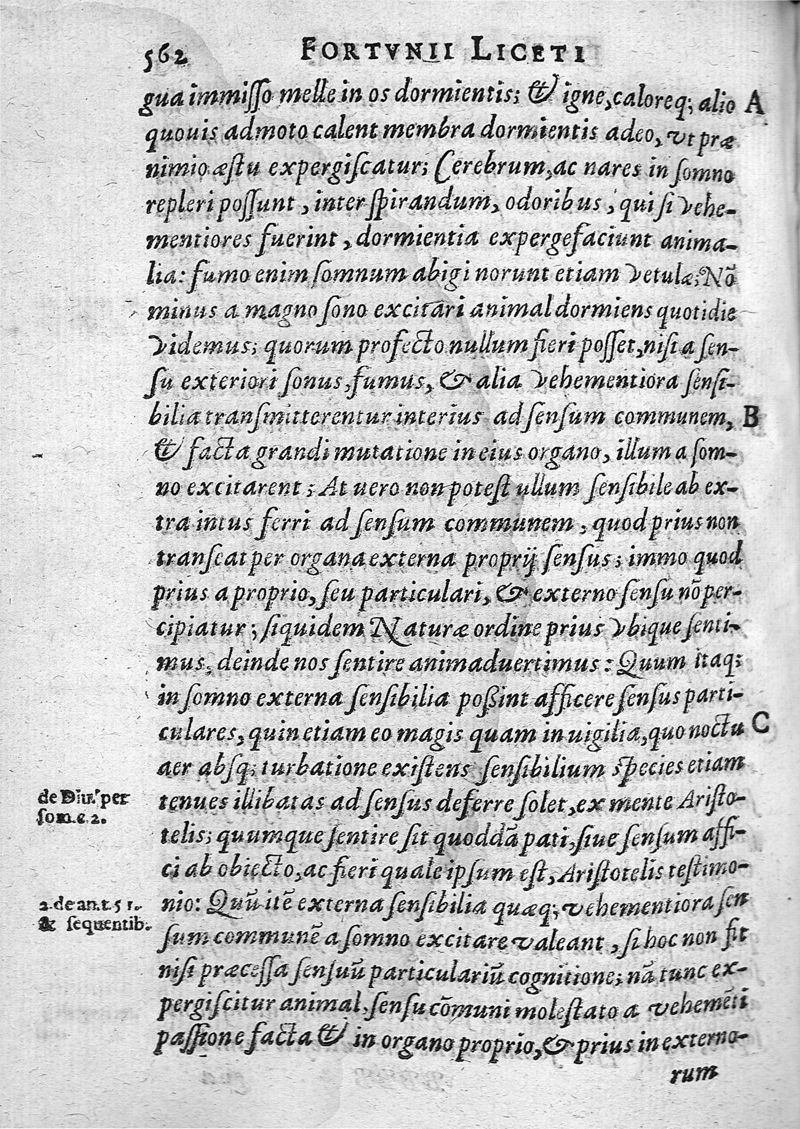 562 FORTVNII LICETI
gua immisso melle in os dormientis; & igne, caloreq; alio A
quouis admoto calent membra dormientis adeo, vt præ
nimio æstu expergiscatur; Cerebrum, ac nares in somno
repleri possunt, inter spirandum, odoribus, qui si vehe-
mentiores fuerint, dormientia expergefaciunt anima-
lia: fumo enim somnum abigi norunt etiam vetulæ; Nõ
minus a magno sono excitari animal dormiens quotidie
videmus; quorum profecto nullum fieri posset, nisi a sen-
su exteriori sonus, fumus, & alia vehementiora sensi-
bilia transmitterentur interius ad sensum communem, B
& facta grandi mutatione in eius organo, illum a som-
no excitarent; At uero non potest ullum sensibile ab ex-
tra intus ferri ad sensum communem, quod prius non
transeat per organa externa proprij sensus; immo quod
prius a proprio, seu particulari, & externo sensu nõ per-
cipiatur; siquidem Naturæ ordine prius vbique senti-
mus, deinde nos sentire animaduertimus: Quum itaq;
in somno externa sensibilia possint afficere sensus parti-
culares, quin etiam eo magis quam in uigilia, quo noctu C
aer absq; turbatione existens sensibilium species etiam
de Diu. per tenues illibatas ad sensus deferre solet, ex mente Aristo-
som. c. 2. telis; quumque sentire sit quoddã pati, siue sensum affi-
ci ab obiecto, ac fieri quale ipsum est, Aristotelis testimo-
2. de an. t. 51. nio: Quũ itẽ externa sensibilia quæq; vehementiora sen
& sequentib. sum communẽ a somno excitare valeant, si hoc non fit
nisi præcessa sensuũ particulariũ cognitione; nã tunc ex-
pergiscitur animal, sensu cõmuni molestato a vehemẽti
passione facta & in organo proprio, & prius in externo-
rum